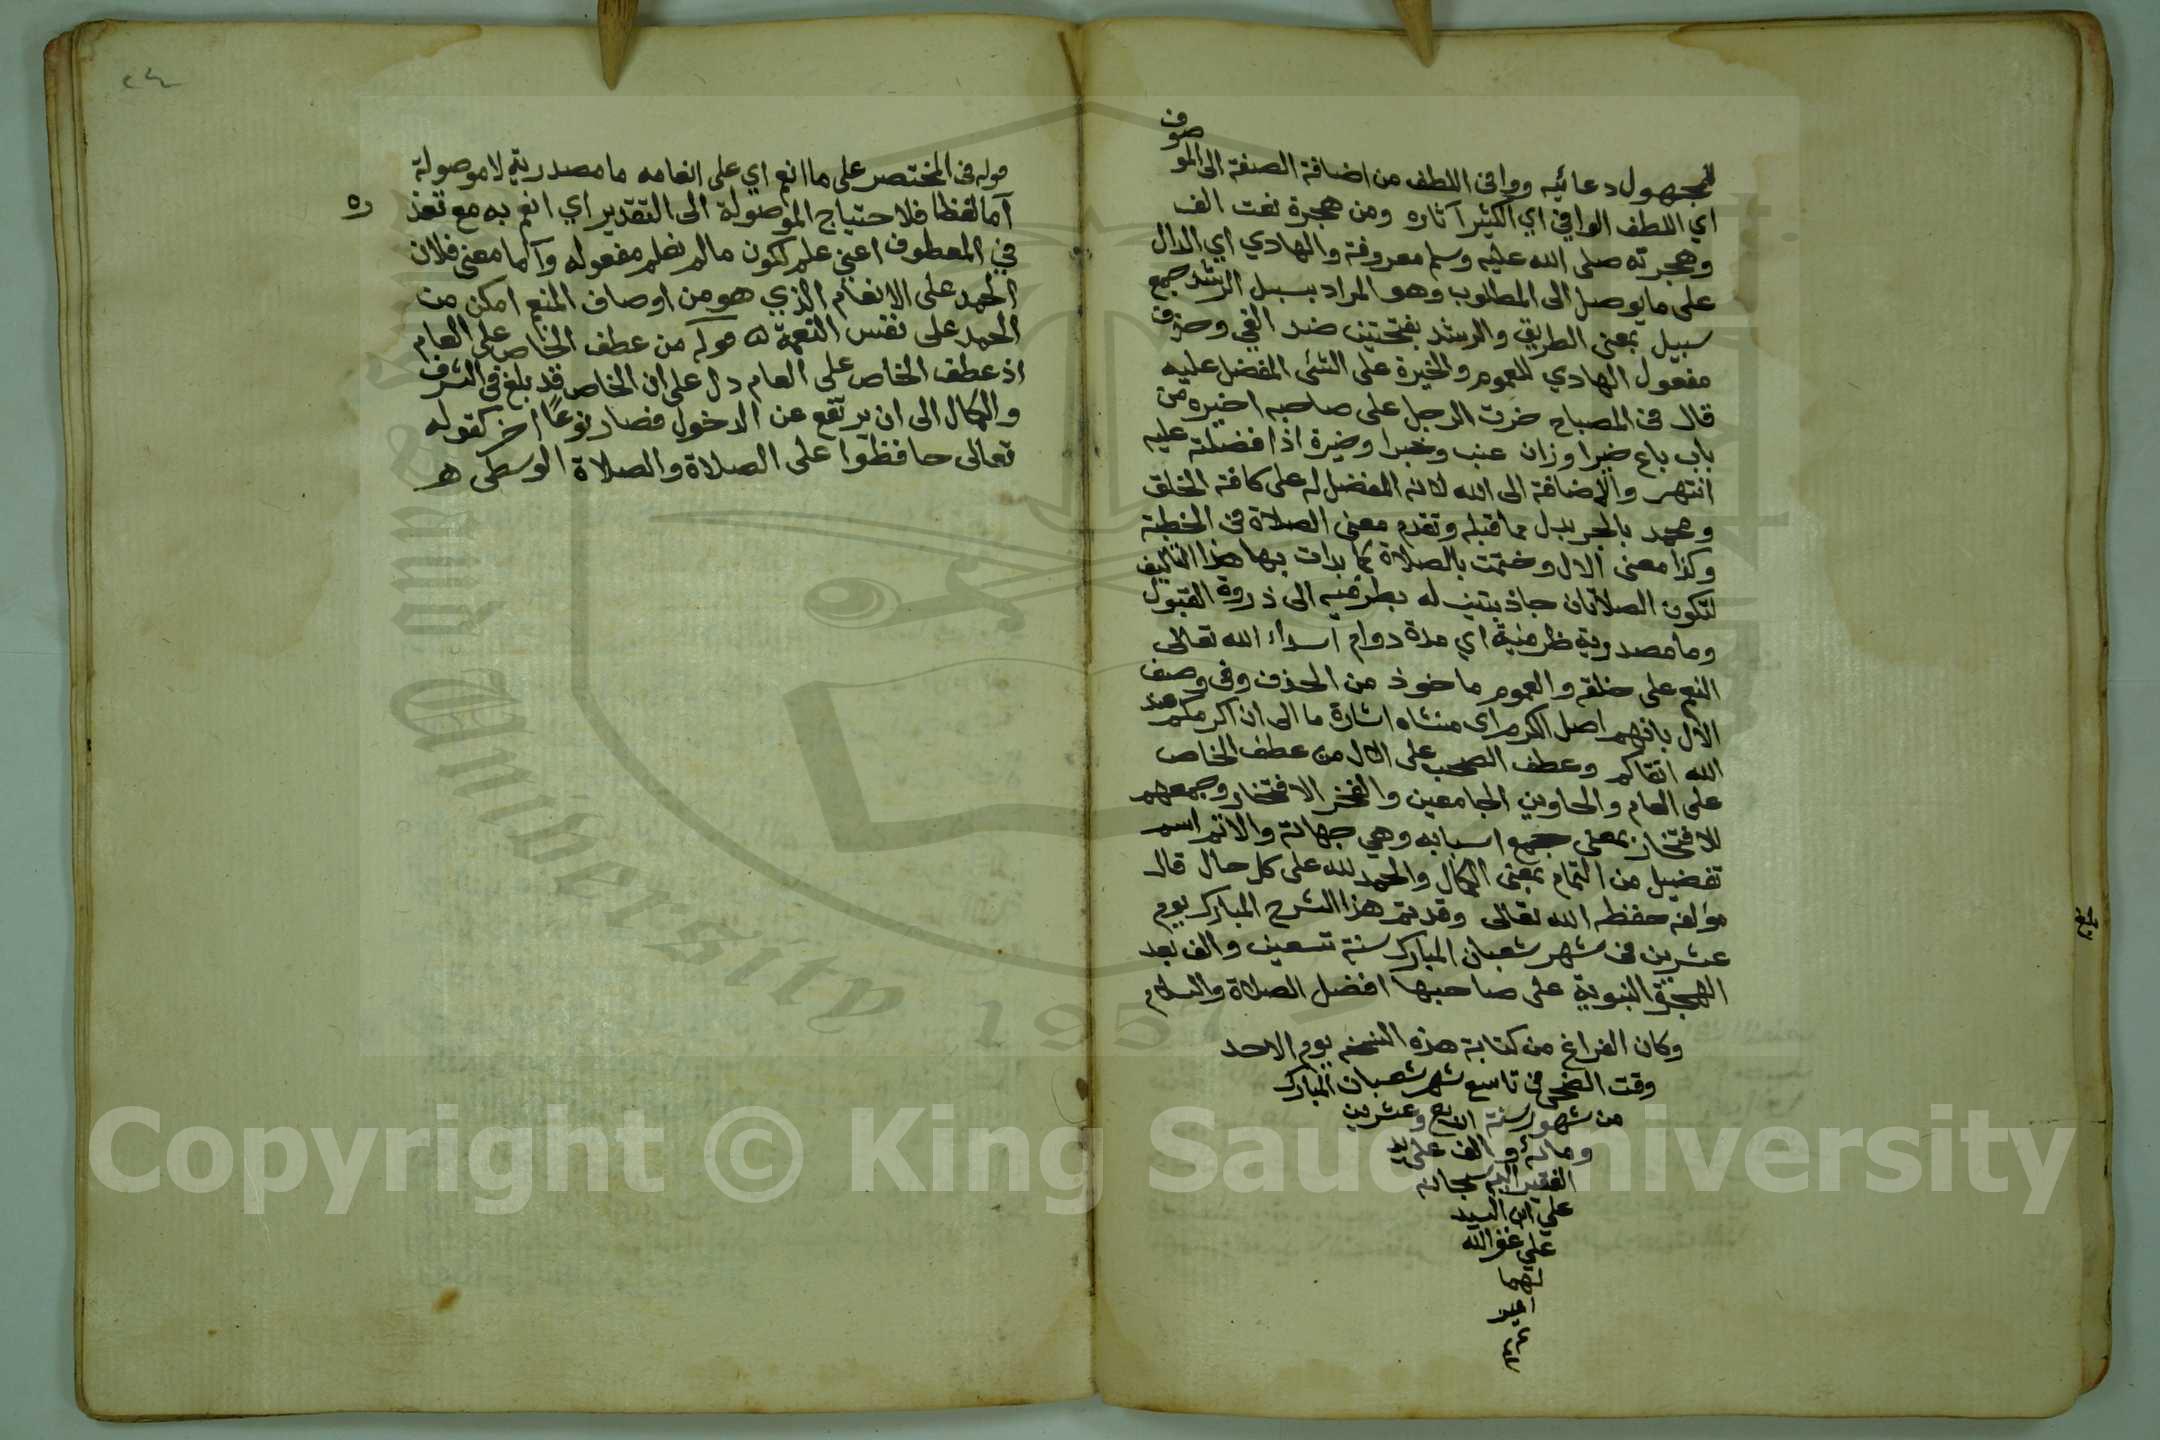 للمجهول دعائيه ووافى اللطف من اضافة الصفة الى الموصوف
اي اللطف الوافي اي الكثير آثاره ومن هجرة نعت الف
وهجرته صلى الله عليه وسلم معروفة والهادي اي الدال
على ما يوصل الى المطلوب وهو المراد بسبل الرشد جمع
سبيل بمعنى الطريق والرشد بفتحتين ضد الغي وحذف
مفعول الهادي للعموم والخيرة على الشئ المفضل عليه
قال في المصباح خرت الرجل على صاحبه اخيره من
باب باع خيرا وزان عنب وخيرا وخيرة اذا فضلته عليه
انتهى والاضافة الى الله لانه المفضل له على كافة الخلق
ومحمد بالجر بدل مما قبله وتقدم معنى الصلاة في الخطبة
وكذا معنى الال وختمت بالصلاة كما بدات بها هذا التاليف
لتكون الصلاتان جاذبتين له بطرفيه الى ذروة القبول
وما مصدرية ظرفية اي مدة دوام اسداء الله تعالى
النعم على خلقه والعموم ماخوذ من الحذف وفى وصف
الال بانهم اصل الكرم اى منشاه اشارة ما الى ان اكرمكم عند
الله اتقاكم وعطف الصحب على الال من عطف الخاص
على العام والحاوين الجامعين والفخر الافتخار وجمعهم
للافتخار بمعنى جمع اسبابه وهي جهاته والاتم اسم
تفضيل من التمام بمعنى الكمال والحمد لله على كل حال قال
مؤلفه حفظه الله تعالى وقد تم هذا الشرح المبارك يوم
عشرين فى شهر شعبان المبارك سنة تسعين والف بعد
الهجرة النبوية على صاحبها افضل الصلاة والسلام
وكان الفراغ من كتابة هذه النسخه يوم الاحد
وقت الضحى في تاسع شهر شعبان المبارك
من شهور سنة اربع وعشرين
ومائة والف على يد
الفقير اليه سبحانه
علي ابن السيد
علي غفر الله
لهما
امين
بلغ
٢٤
قوله فى المختصر على ما انعم اي على انعامه ما مصدرية لا موصولة
اما لفظا فلاحتياج الموصولة الى التقدير اي انعم به مع تعذره
في المعطوف اعني علم لكون ما لم نعلم مفعوله واما معنى فلان
الحمد على الانعام الذي هو من اوصاف المنعم امكن من
الحمد على نفس النعمة قوله من عطف الخاص على العام
اذ عطف الخاص على العام دل على ان الخاص قد بلغ في الشرف
والكمال الى ان يرتفع عن الدخول فصار نوعًا اخر كقوله
تعالى حافظوا على الصلاة والصلاة الوسطى هـ
King Saud University 1957
Copyright © King Saud University